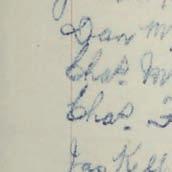 Dan M
Chas. M
Chas. F
Jas Kell